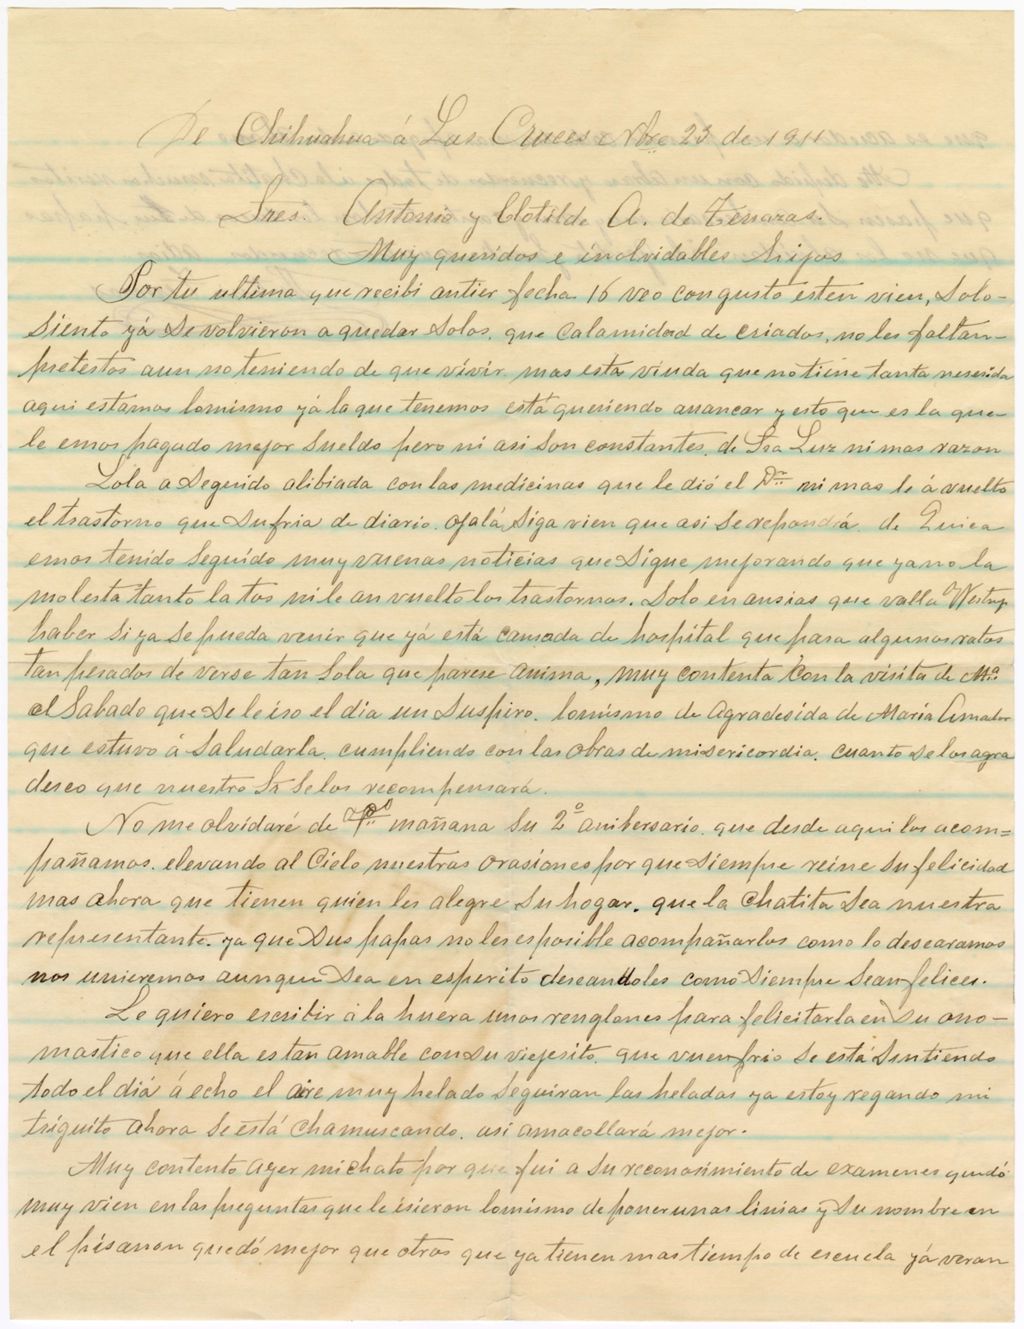 De Chihuahua á Las Cruces Nbre 23 de 1911
Sres. Antonio y Clotilde A. de Terrazas.
Muy queridos e inolvidables hijos
Por tu ultima que recibi antier fecha 16 veo con gusto esten vien, Solo-
siento yá se volvieron a quedar solos. que calamidad de criados, no les faltan-
pretestos aun no teniendo de que vivir. mas esta viuda que no tiene tanta nesesida
aqui estamos lo mismo yá la que tenemos está queriendo arrancar y esto que es la que-
le emos pagado mejor sueldo pero ni asi son constantes. de Sra Luz ni mas razon
Lola a seguido alibiada con las medicinas que le dió el Dr. ni mas le á vuelto
el trastorno que sufria de diario. ojalá, siga vien que asi se repondrá. de
emos tenido seguido muy vuenas noticias que sigue mejorando que ya no la
molesta tanto la tos ni le an vuelto los trastornos. Solo en ansias que valla
haber si ya se pueda venir que yá está cansada de hospital que pasa algunos ratos
tan pesados de verse tan sola que parese anima, muy contenta con la visita de Ma.
el Sabado que se le iso el dia un suspiro. lo mismo de agradesida de María Amador
que estuvo á saludarla. cumpliendo con las obras de misericordia. cuanto se los agra
desco que nuestro Sr. se los recompensará.
No me olvidaré de mañana su 2º anibersario. que desde aqui los acom=
pañamos. elevando al Cielo nuestras orasiones por que siempre reine su felicidad
mas ahora que tienen quien les alegre su hogar. que la Chatita sea nuestra
representante. ya que sus papas no les es posible acompañarlos como lo desearamos
nos unieremos aunque sea en esperito deseandoles como siempre sean felices.
Le quiero escribir á la huera unos renglones para felicitarla en su ono-
mastico que ella es tan amable con su viejesito. que vuen frio se está sintiendo
todo el diá á echo el aire muy helado seguiran las heladas ya estoy regando mi
triguito ahora se está chamuscando. asi amacollará mejor.
Muy contento ayer mi chato por que fui a su reconosimiento de examenes quedó
muy vien en las preguntas que le isieron lo mismo de poner unas linias y su nombre en
el pisarron quedó mejor que otros que ya tienen mas tiempo de escuela yá veran